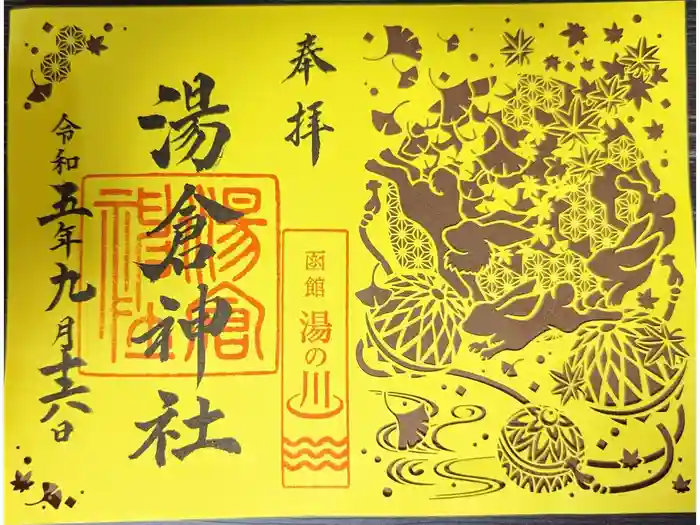 奉拝
湯倉神社
令和五年九月十六日
湯倉神社
函館
湯の川